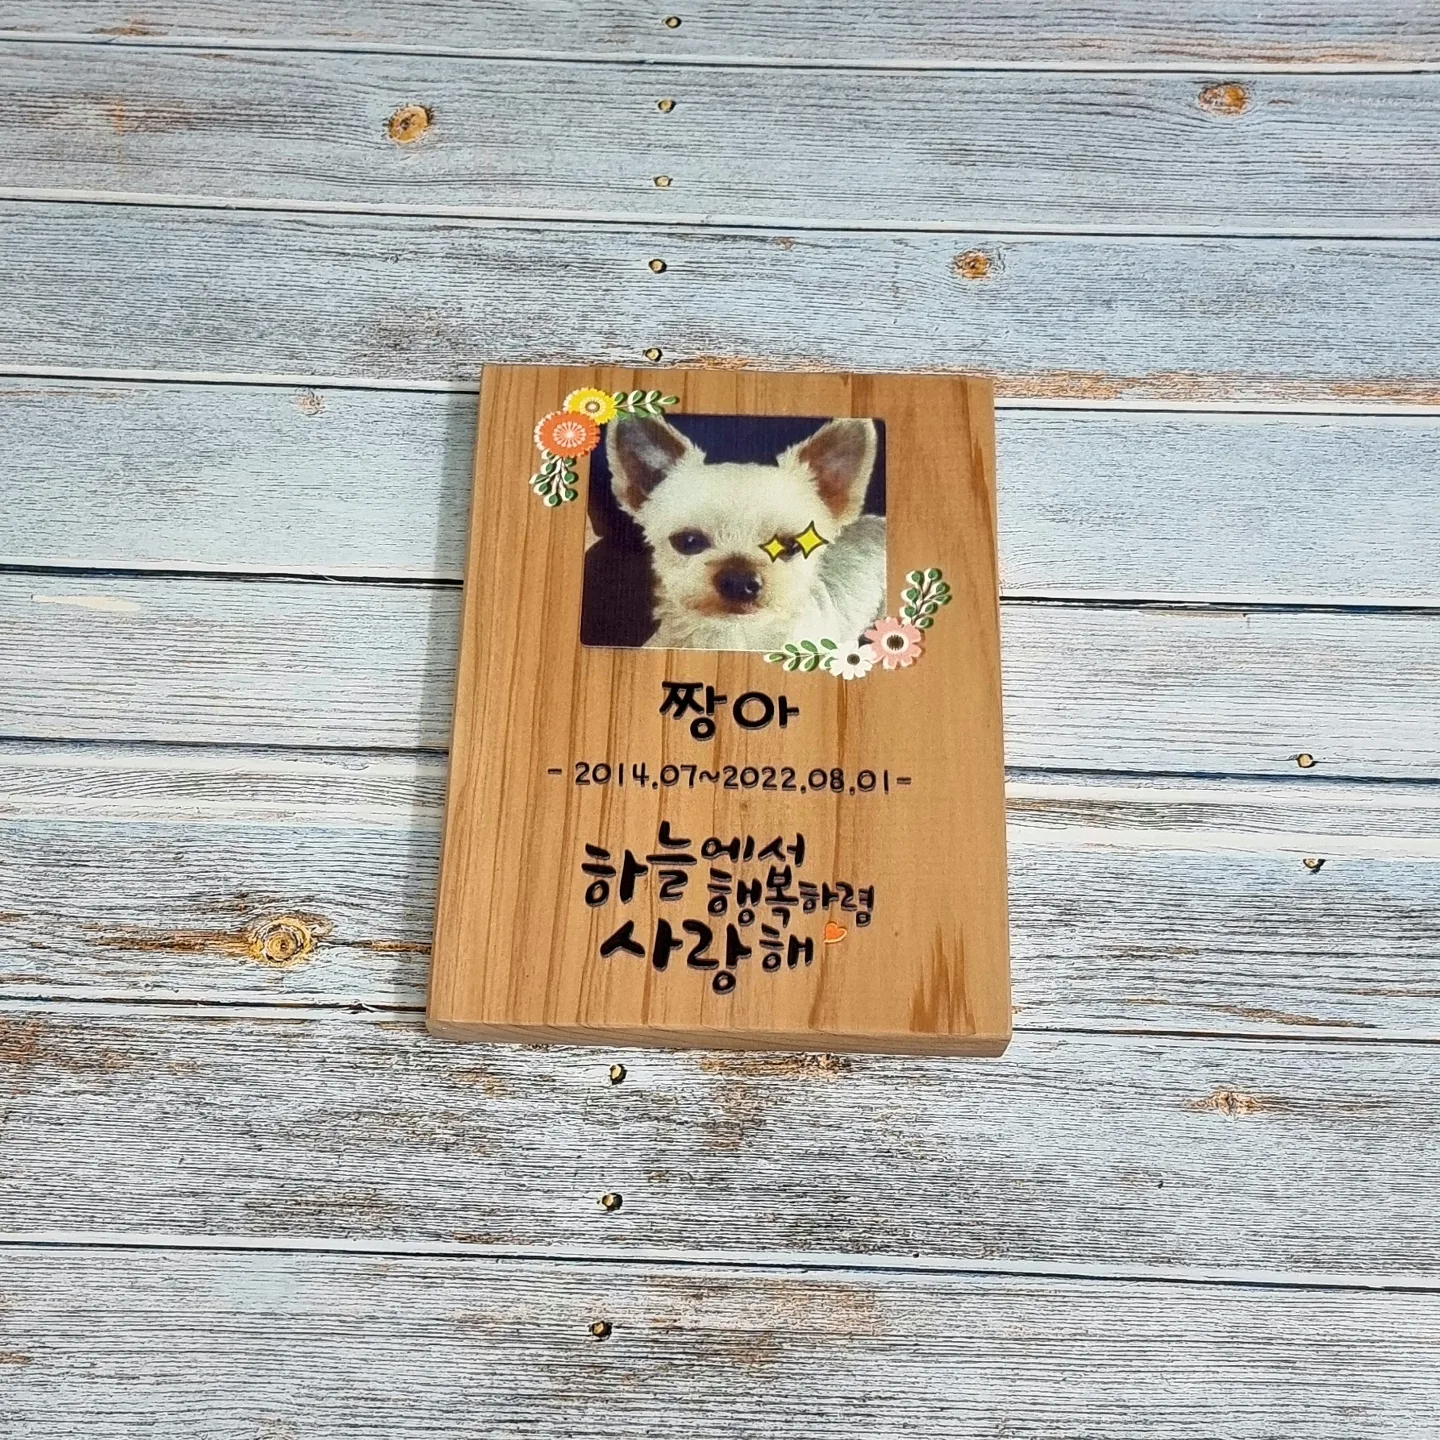 짱아
- 2014.07~2022.08.01-
하늘에서
행복하렴
사랑해